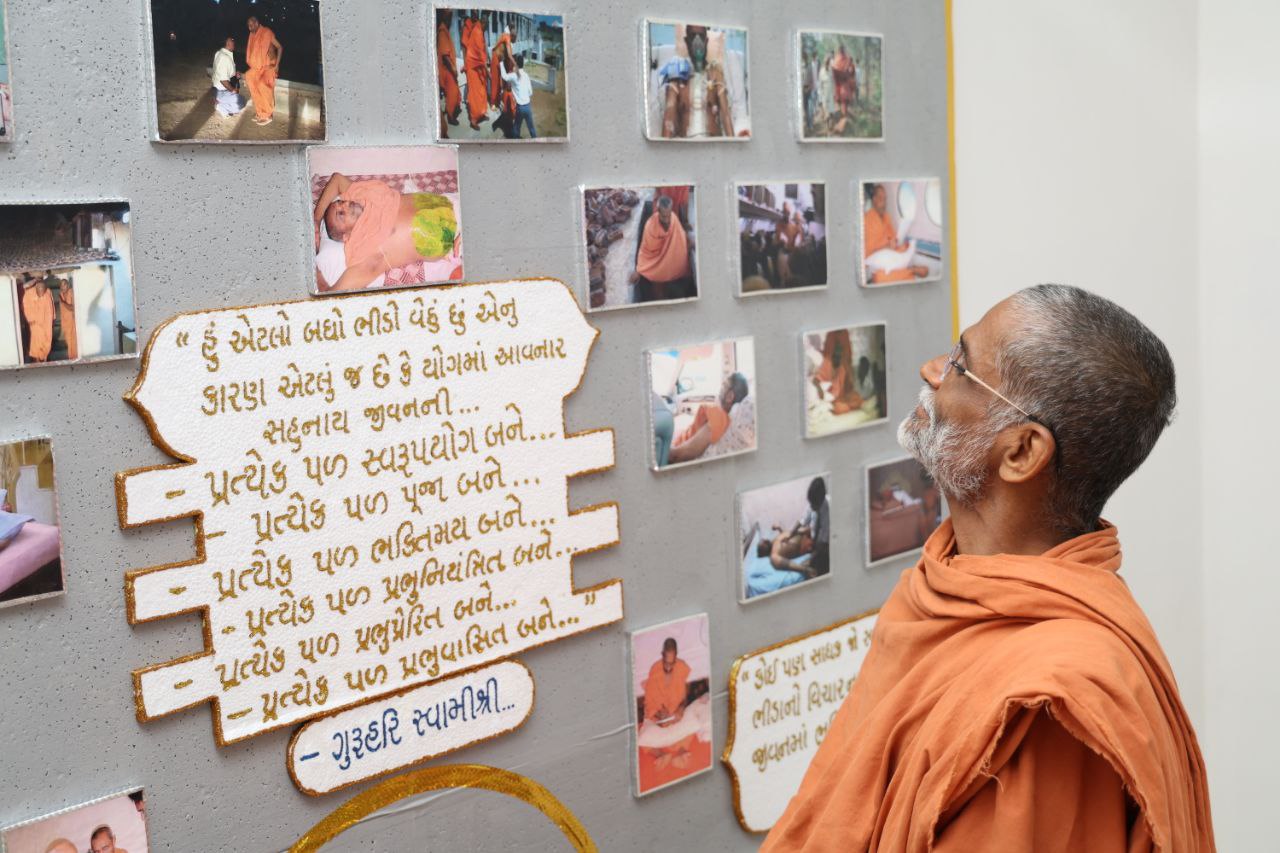 “ હું એટલો બધો ભીડો વેઠું છું એનુ
કારણ એટલું જ છે કે યોગમાં આવનાર
સહુનાય જીવનની...
– પ્રત્યેક પળ સ્વરૂપયોગ બને...
– પ્રત્યેક પળ પૂજા બને...
– પ્રત્યેક પળ ભક્તિમય બને...
– પ્રત્યેક પળ પ્રભુનિયંત્રિત બને...
– પ્રત્યેક પળ પ્રભુપ્રેરિત બને...
– પ્રત્યેક પળ પ્રભુવાસિત બને...”
– ગુરૂહરિ સ્વામીશ્રી...
“ કોઈ પણ સાધક જો
ભીડાનો વિચાર
જીવનમાં